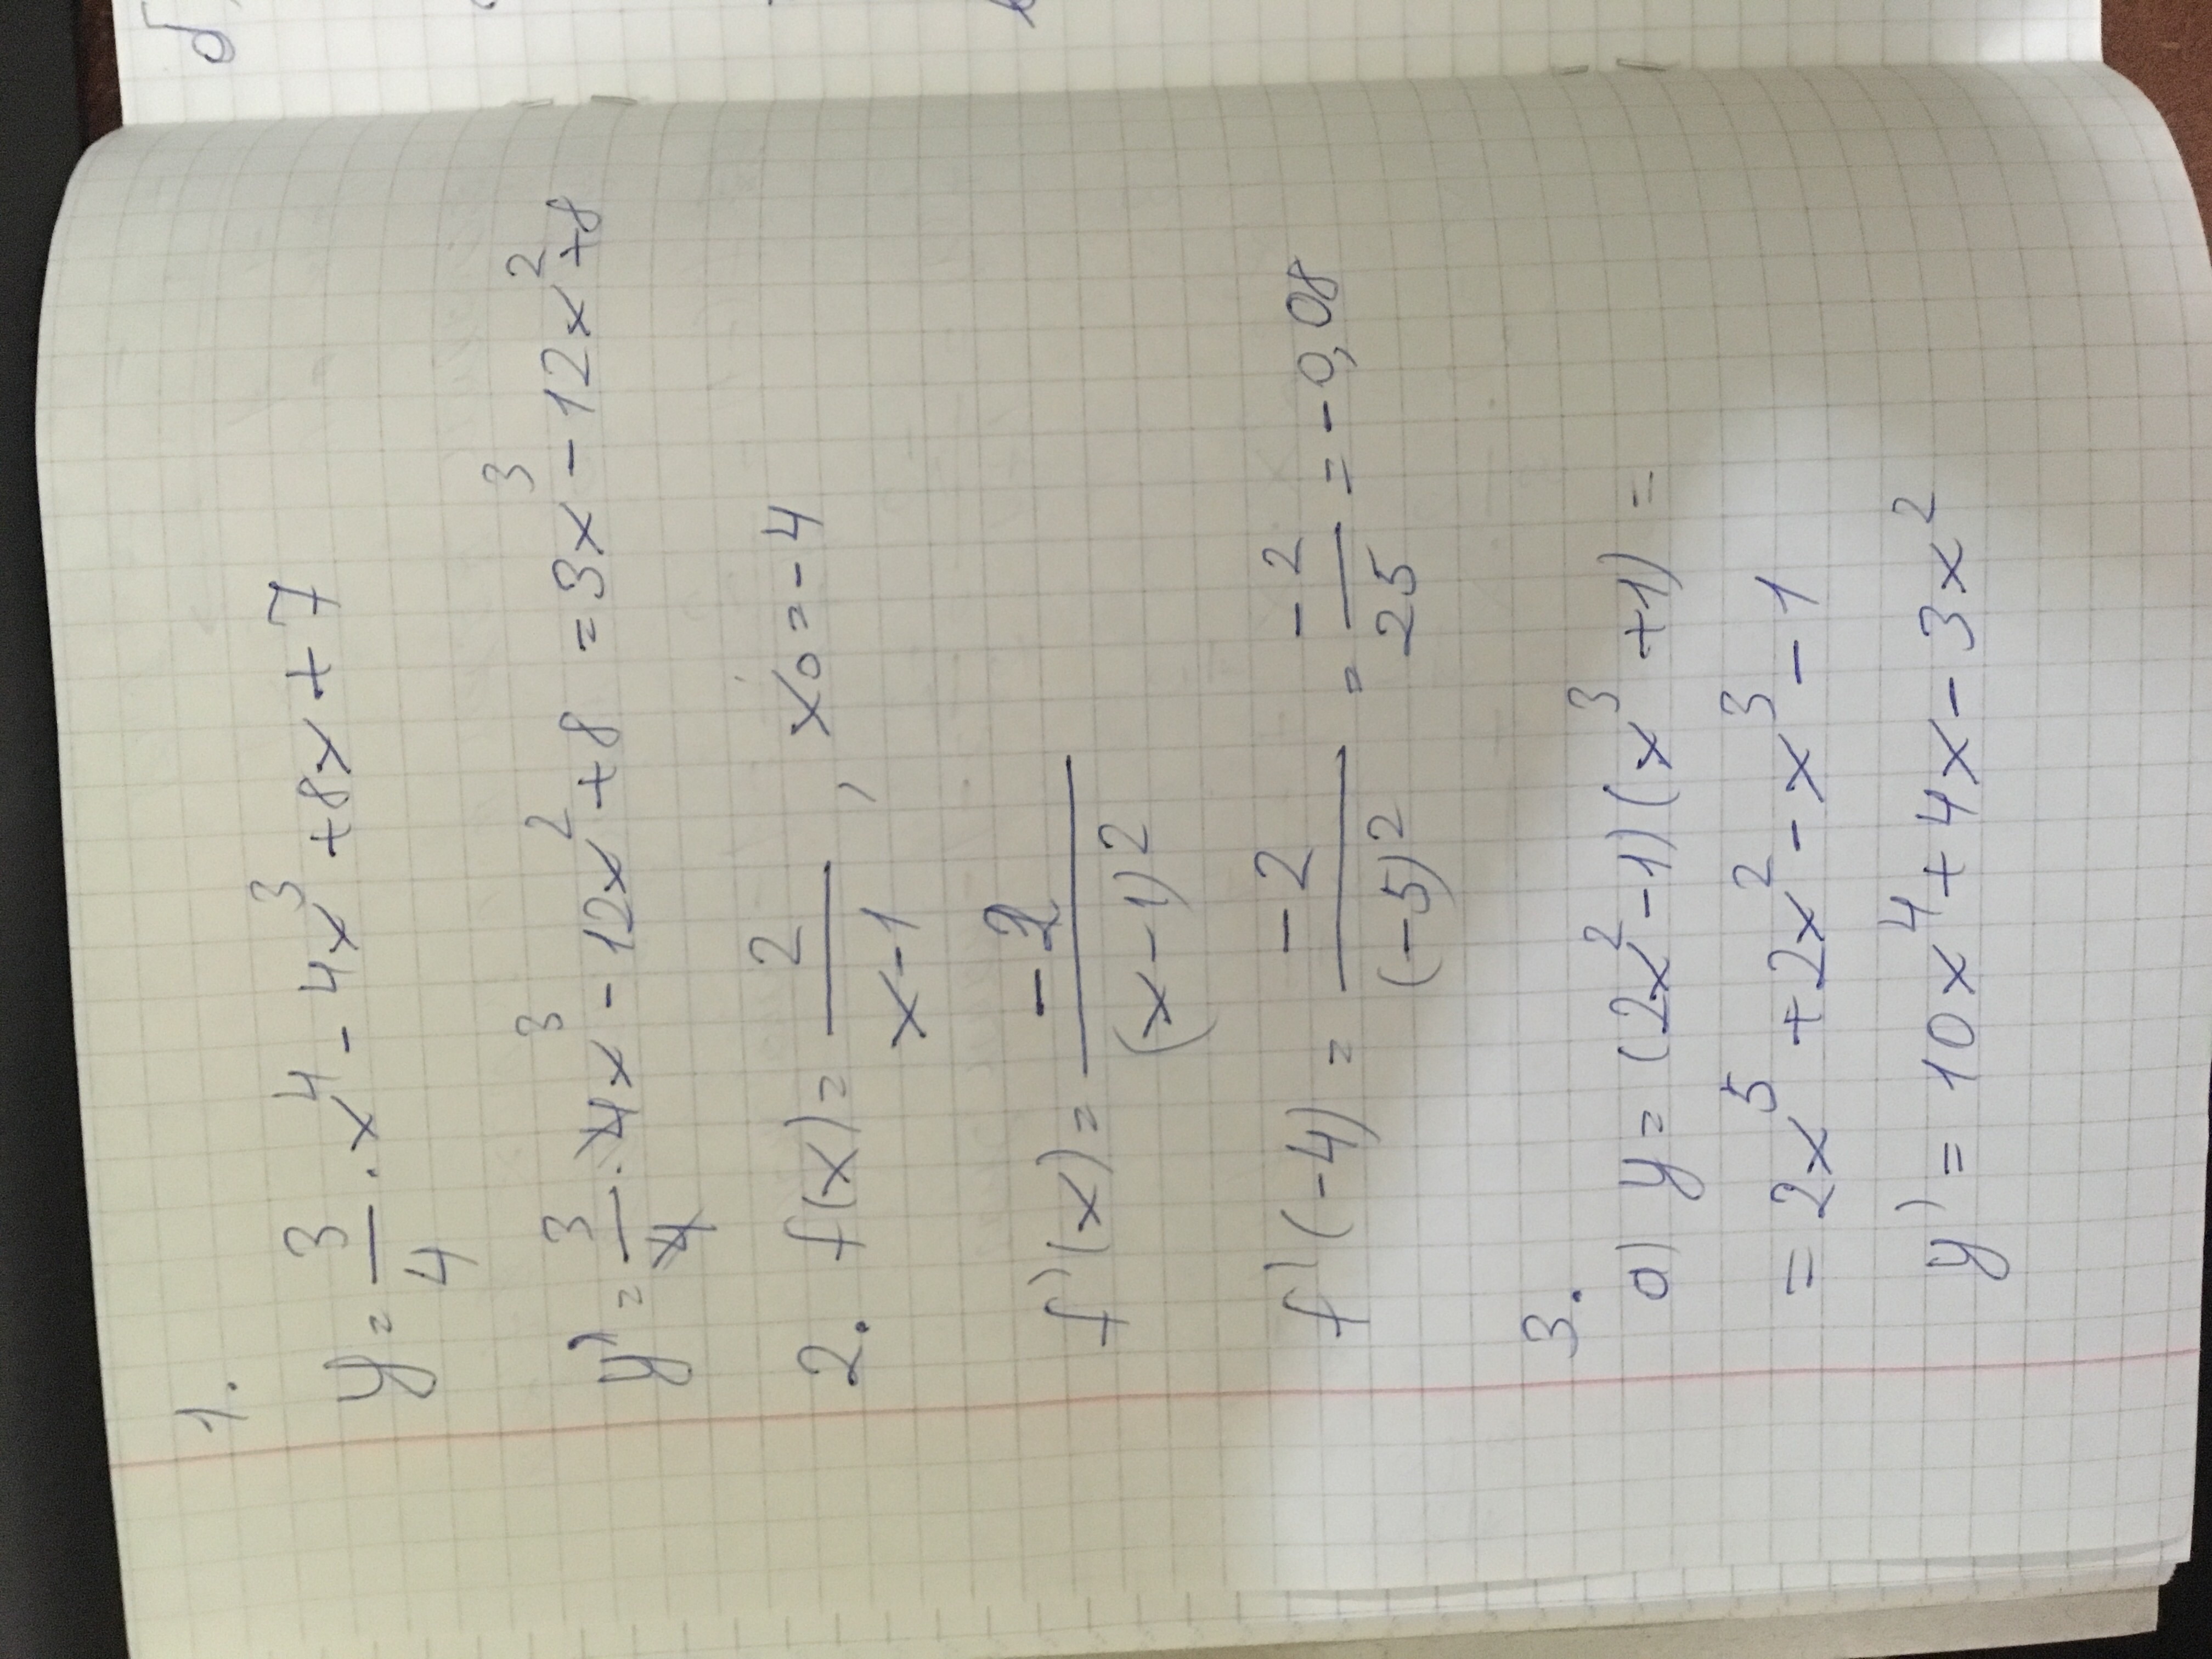 1.
y = 3/4 · x⁴ - 4x³ + 8x + 7
y' = 3/4 · 4x³ - 12x² + 8 = 3x³ - 12x² + 8
2. f(x) = 2/(x-1) , x₀ = -4
f'(x) = -2/(x-1)²
f'(-4) = -2/(-5)² = -2/25 = -0,08
3.
а) y = (2x² - 1)(x³ + 1) =
= 2x⁵ + 2x² - x³ - 1
y' = 10x⁴ + 4x - 3x²
б